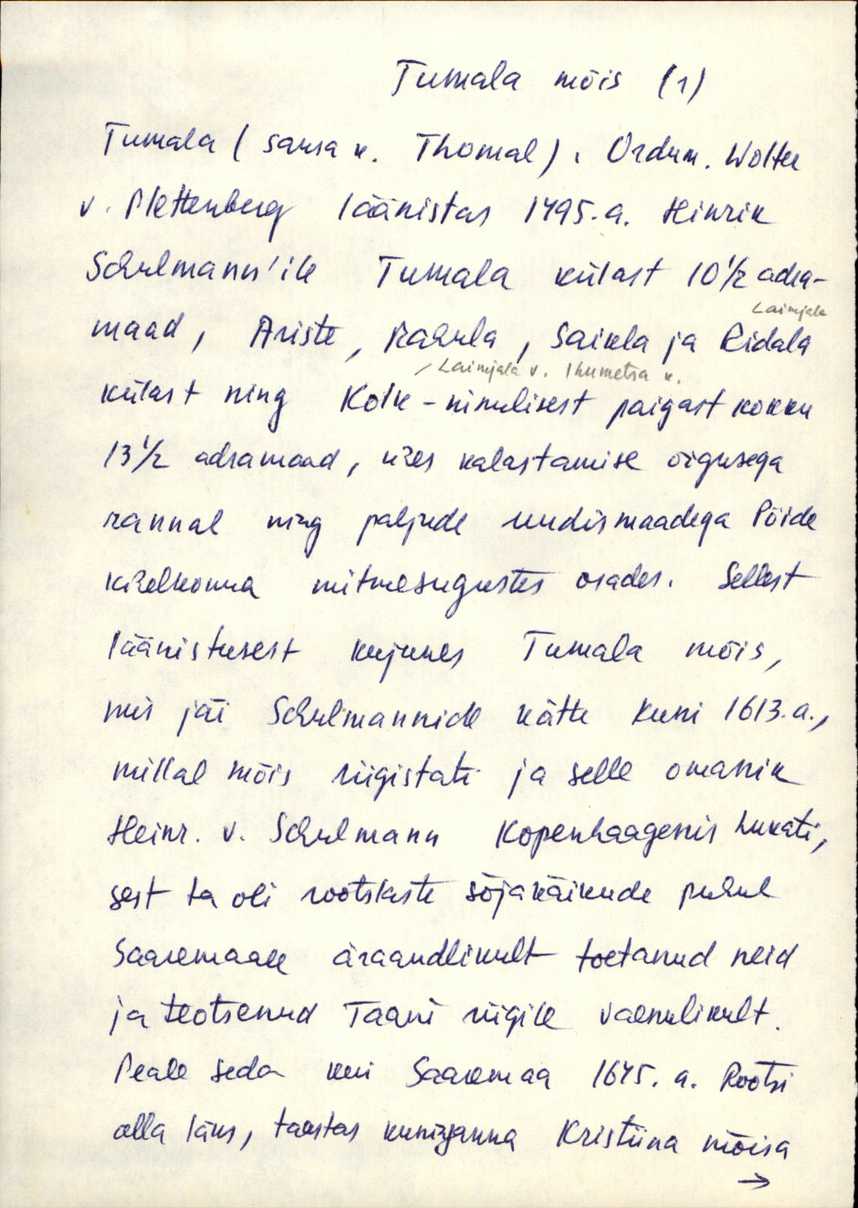 Tumala mõis (1)
Tumala (saksa k. Thomal). Ordum. Wolter
v. Plettenberg läänistas 1495. a. Hinrik
Schulmann'ile Tumala külast 10 1/2 adra-
Laimjala
maad, Ariste, Kahula, Saikla ja Ridala
Laimjala v. Ihumetsa k.
külast ning Kolk-nimelisest paigast kokku
13 1/2 adramaad, ühes kalastamise õigusega
rannal ning paljude uudismaadega Pöide
kihelkonna mitmesugustes osades. Sellest
läänistusest kujunes Tumala mõis,
mis jäi Schulmannide kätte kuni 1613. a.,
millal mõis riigistati ja selle omanik
Heinr. v. Schulmann Kopenhaagenis hukati,
sest ta oli rootslaste sõjakäikude puhul
Saaremaale äraandlikult toetanud neid
ja teotsenud Taani riigile vaenulikult.
Peale seda kui Saaremaa 1645. a. Rootsi
alla läks, taastas kuninganna Kristiina mõisa
→